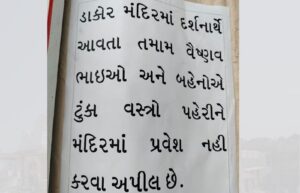 ડાકોર મંદિરમાં દર્શનાર્થે
આવતા તમામ વૈષ્ણવ
ભાઇઓ અને બહેનોએ
ટુંકા વસ્ત્રો પહેરીને
મંદિરમાં પ્રવેશ નહી
કરવા અપીલ છે.